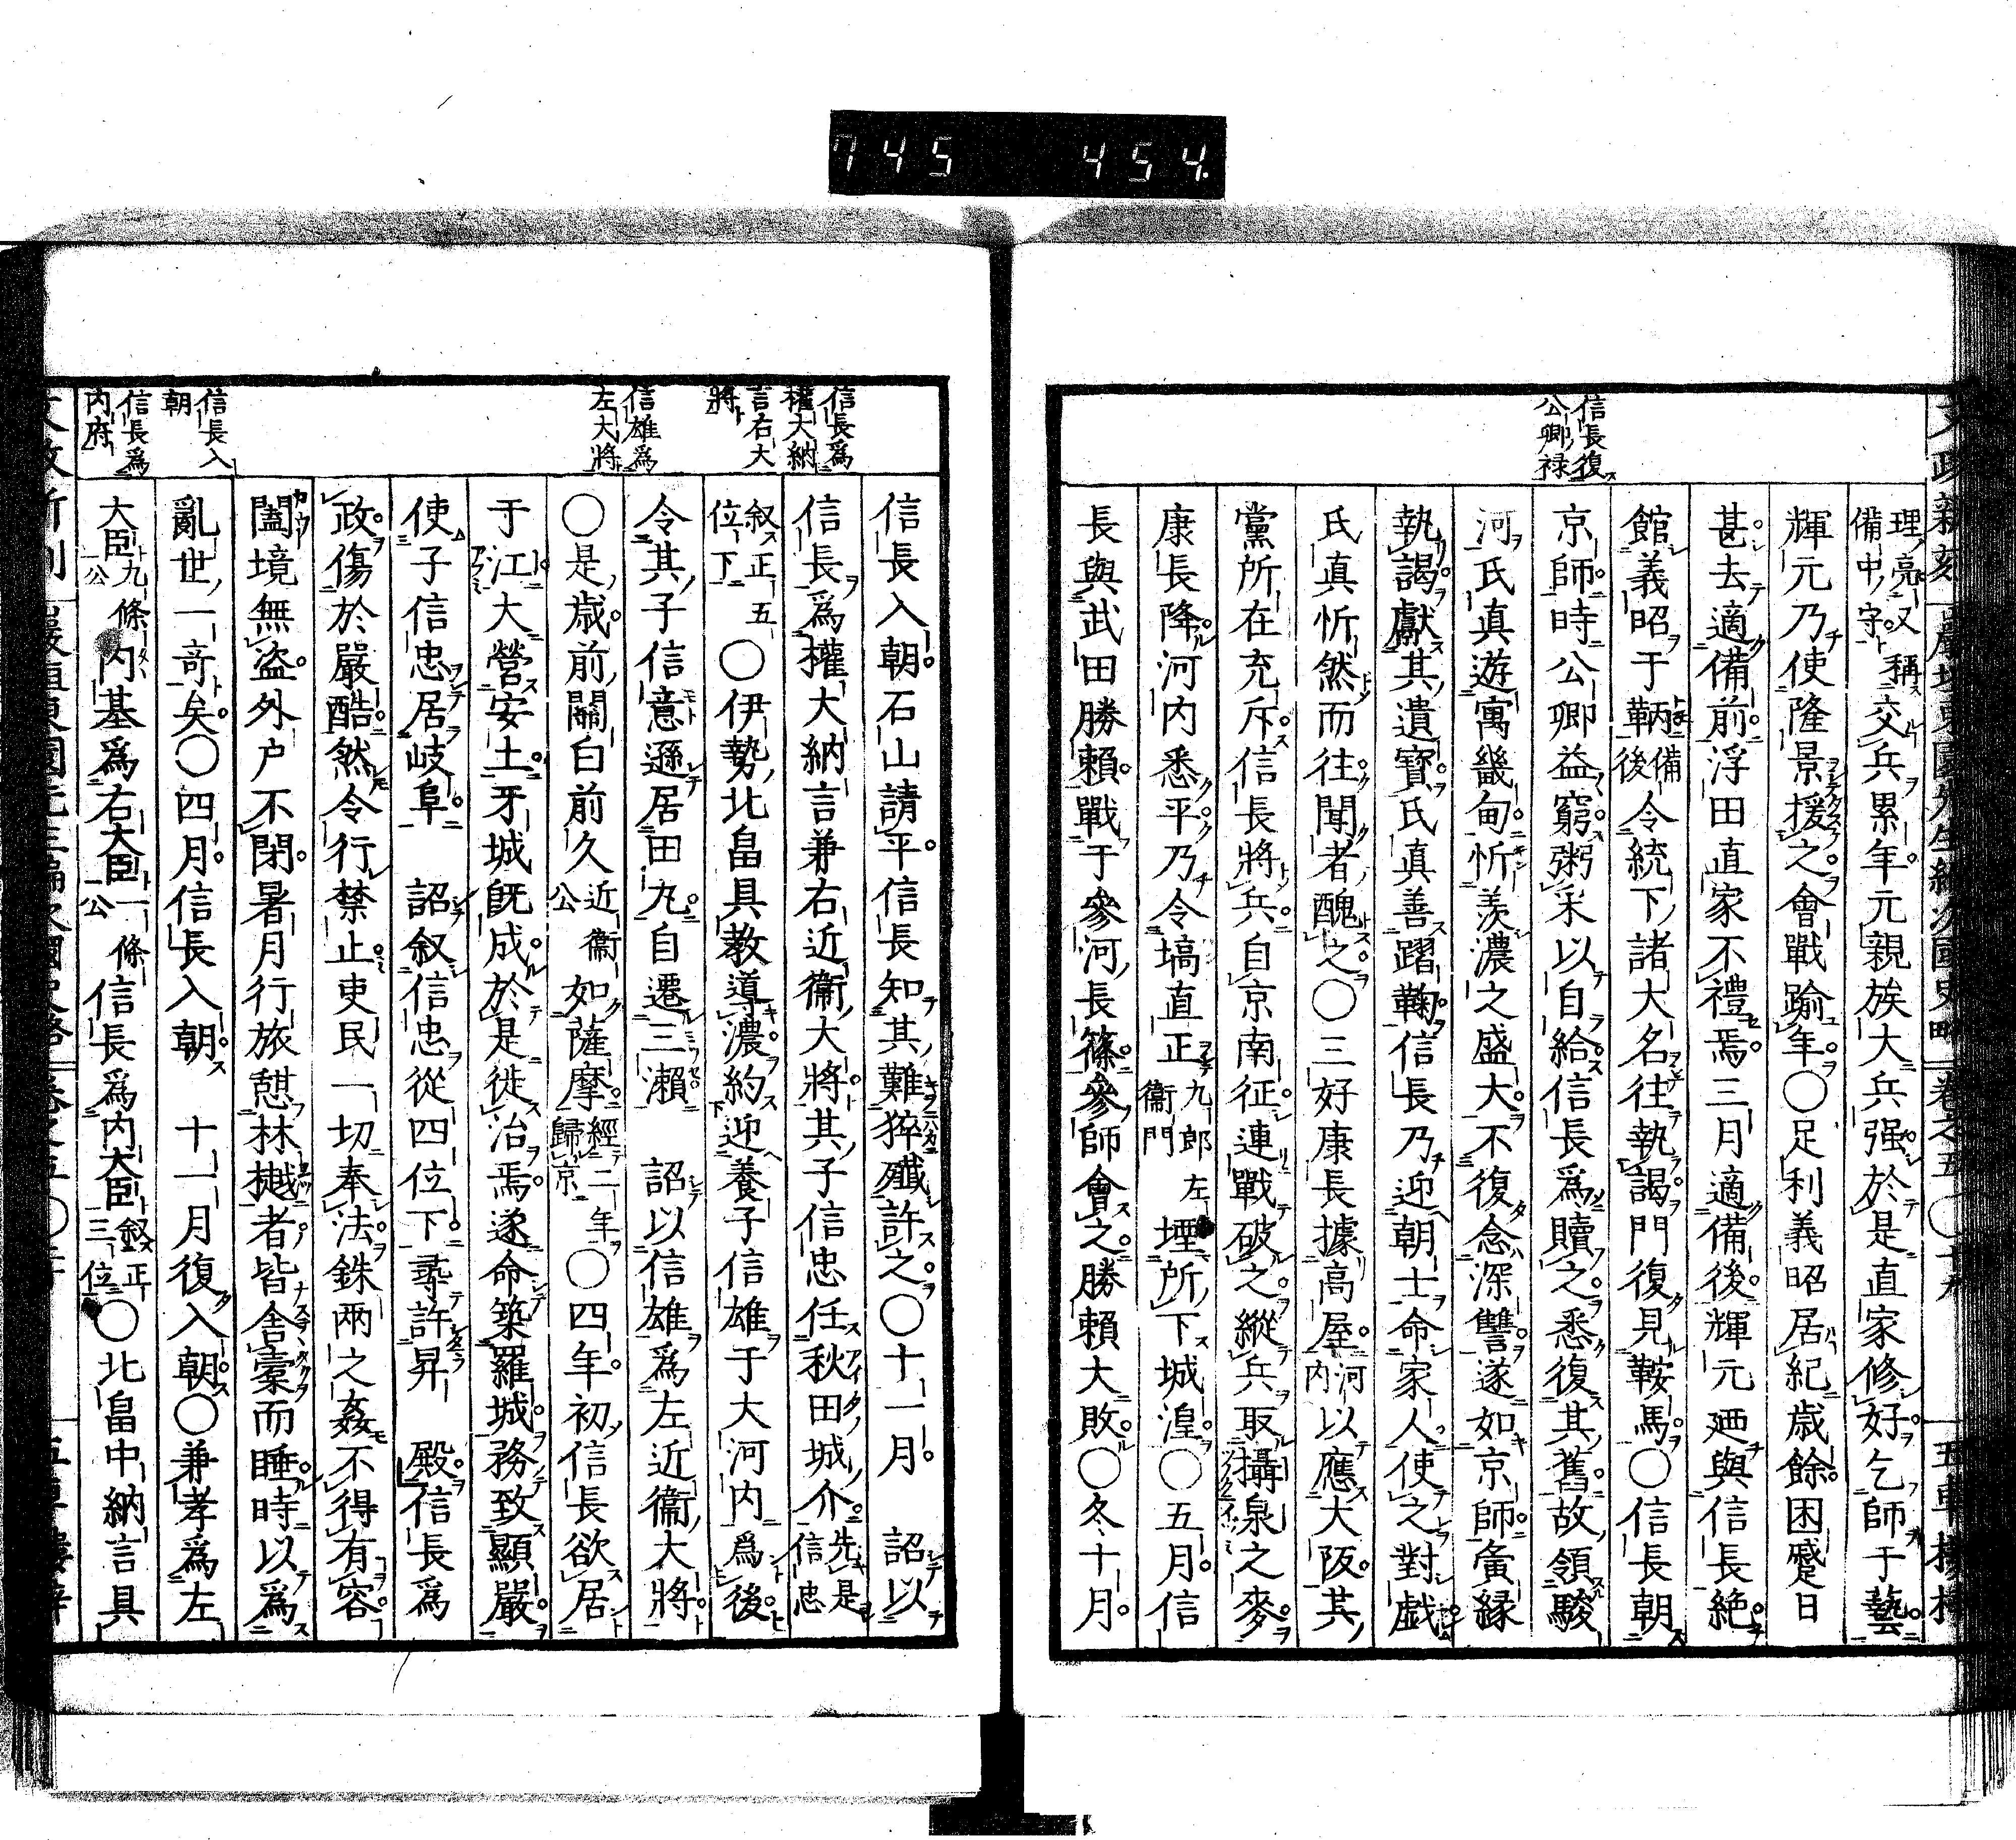 745 454.
信長復
公卿祿
理亮又稱
備中守交兵累年元親族大兵强於是直家修好乞師于藝
輝元乃使隆景援之會戰踰年○足利義昭居紀歳餘困蹙日
甚去適備前浮田直家不禮焉三月適備後輝元廼與信長絶
館義昭于鞆備後令統下諸大名往執謁門復見鞍馬○信長朝
京師時公卿益窮粥采以自給信長爲贖之悉復其舊故領駿
河氏眞遊寓畿甸忻羨濃之盛大不復念深讐遂如京師夤縁
執謁獻其遺寶氏眞善躍鞠信長乃迎朝士命家人使之對戯
氏眞忻然而往聞者醜之○三好康長據高屋河内以應大阪其
黨所在充斥信長將兵自京南征連戰破之縱兵取攝泉之麥
康長降河内悉平乃令塙直正九郎左衞門堙所下城湟○五月信
長與武田勝賴戰于參河長篠參師會之勝賴大敗○冬十月
信長爲
權大納
言右大
將
信雄爲
左大將
信長入
朝
信長爲
内府
信長入朝石山請平信長知其難猝殲許之○十一月 詔以
信長爲權大納言兼右近衞大將其子信忠任秋田城介先是信忠
叙正五位下○伊勢北畠具教導濃約迎養子信雄于大河内爲後
令其子信意遜居田丸自遷三瀨 詔以信雄爲左近衞大將
○是歳前關白前久近衞公如薩摩經二年歸京○四年初信長欲居
于江大營安土牙城旣成於是徙治焉遂命築羅城務致顯嚴
使子信忠居岐阜 詔叙信忠從四位下尋許昇 殿信長爲
政傷於嚴酷然令行禁止吏民一切奉法銖兩之姦不得有容
闔境無盜外户不閉暑月行旅憇林樾者皆舎橐而睡時以爲
亂世一竒矣○四月信長入朝 十一月復入朝○兼孝爲左
大臣九條公内基爲右大臣一條公信長爲内大臣叙正三位○北畠中納言具